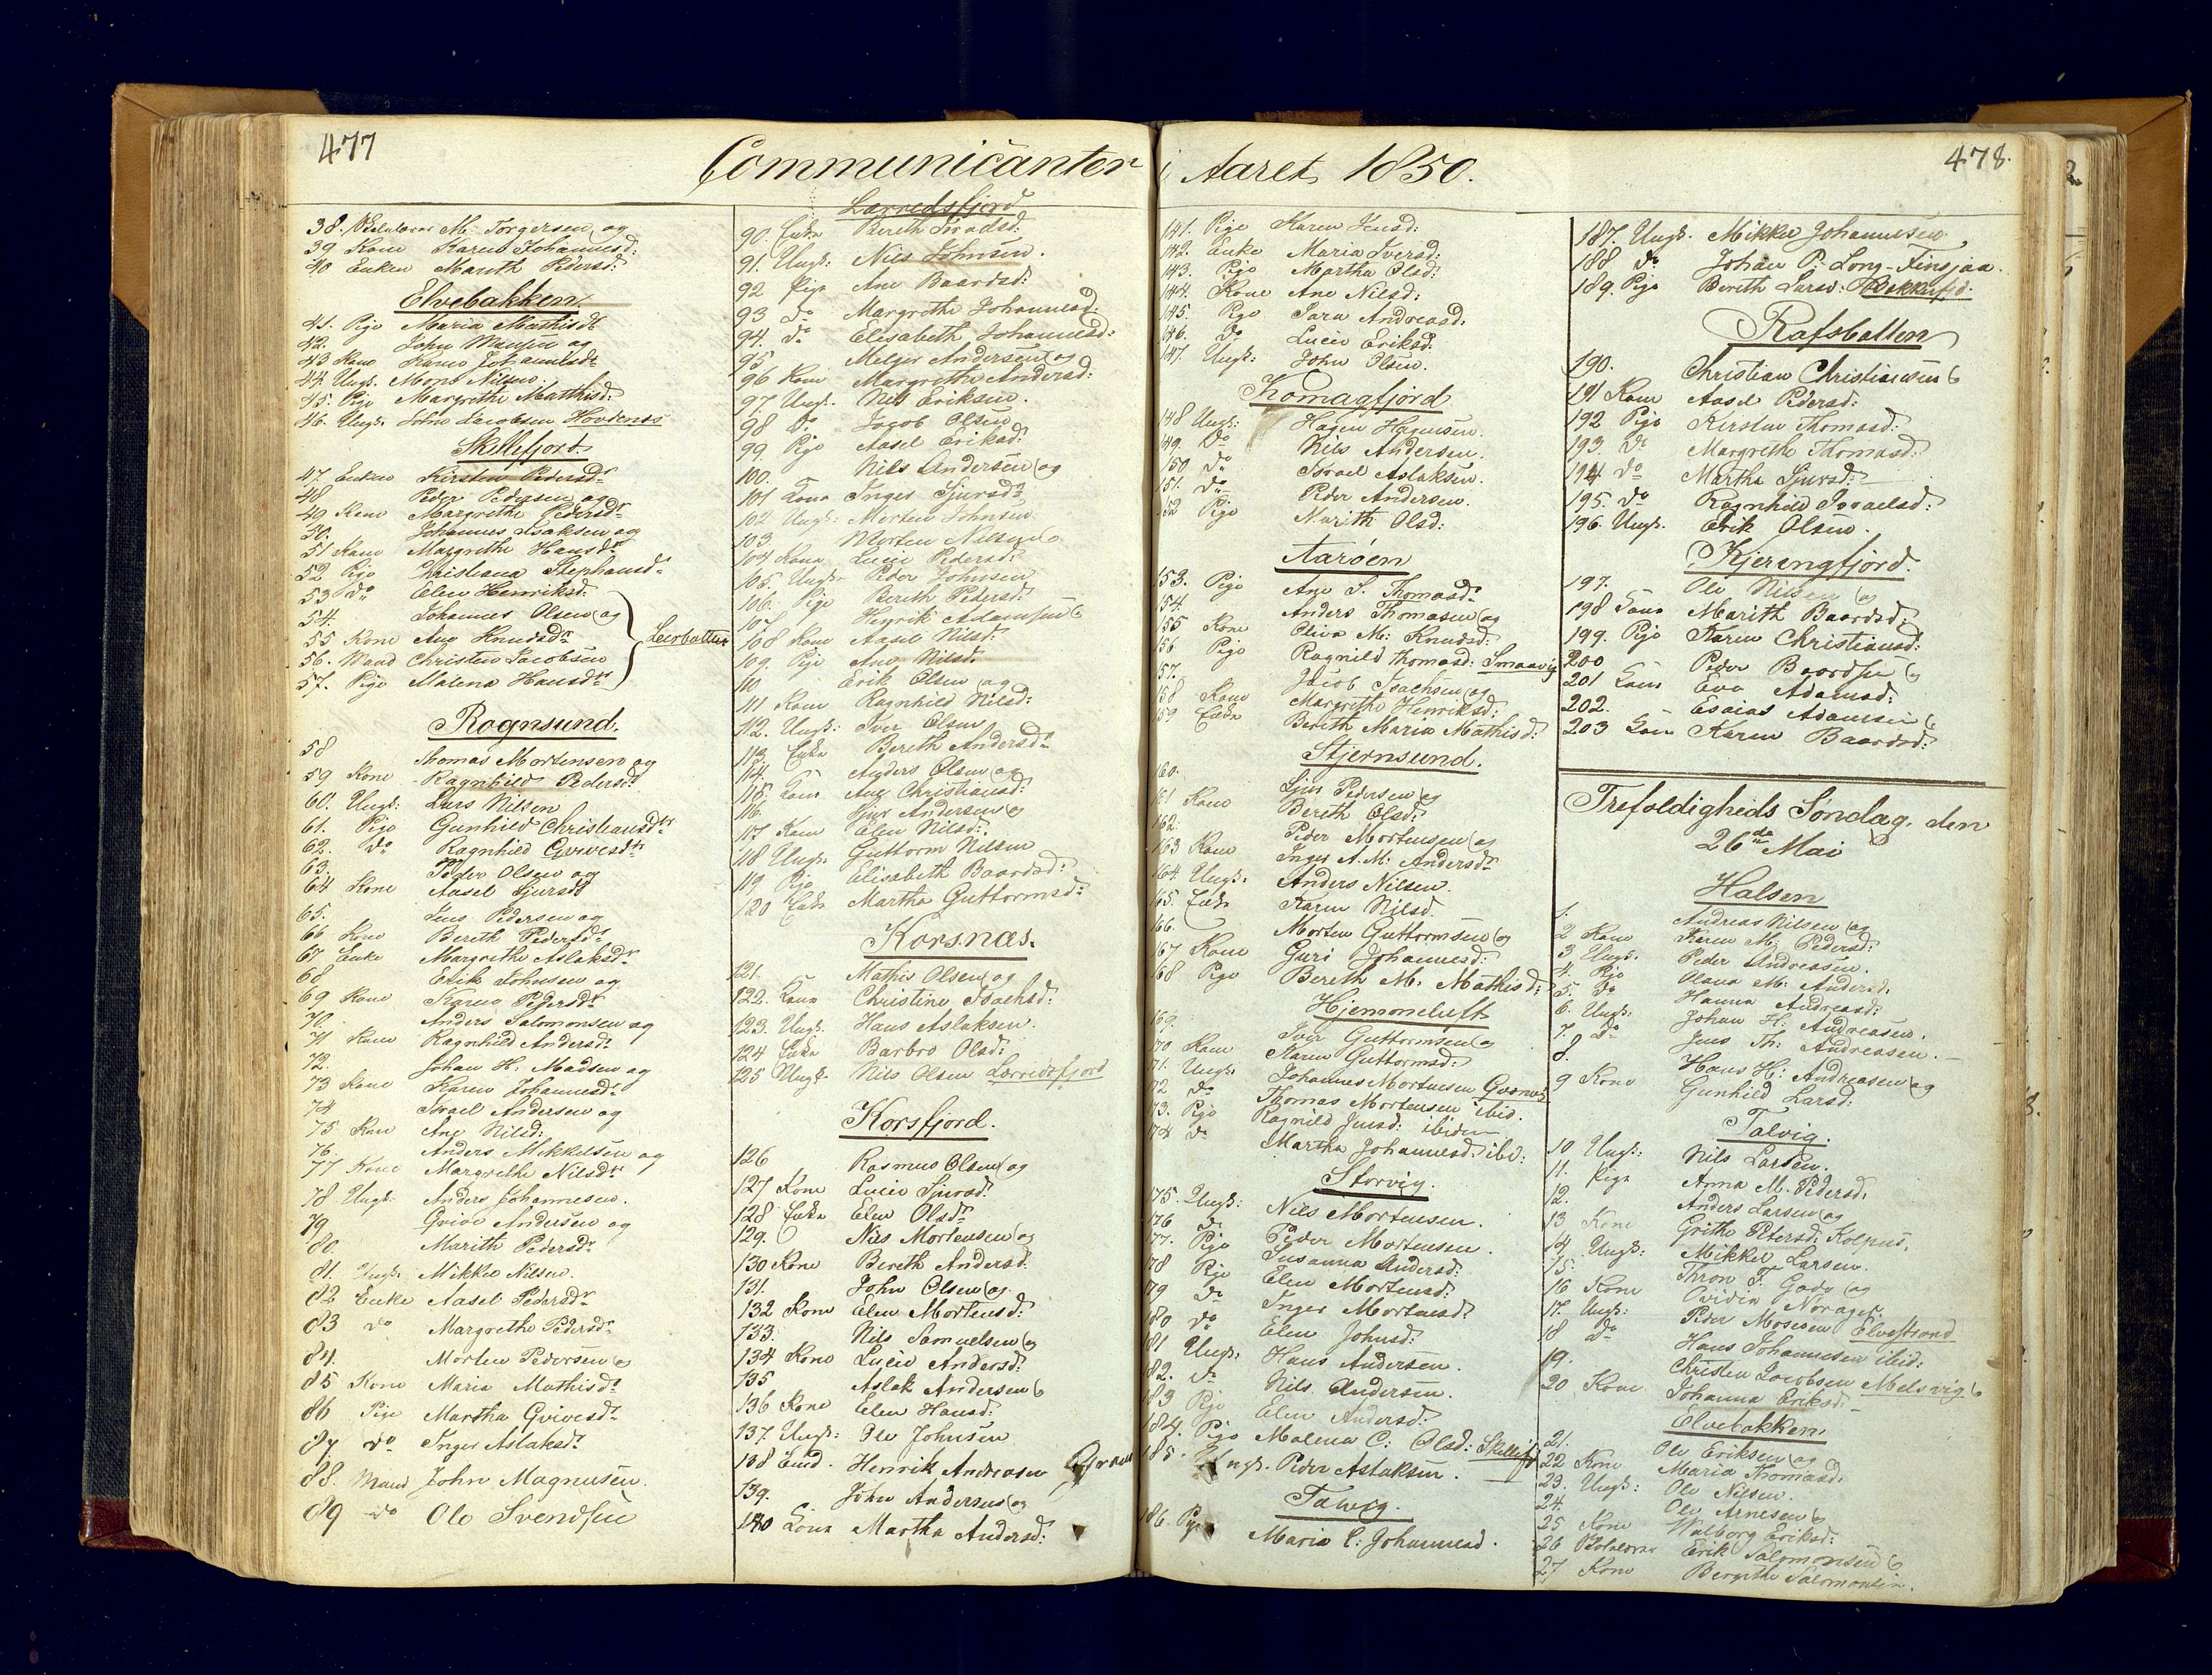 477
Communicanter
38. M. Torgersen og
39 Kone Karen Johannesd:
40 Enken Marith Pedersd:
Elvebakken
41. Pige Maria Mathisdr
42. John og
43 Kone Karen Johannesdr
44 Ungk. Mons Nilsen.
45. Pige Margrethe Matthisd:
46. Ungk. John Jacobsen
Skillefjord
47. Enken Kirsten Pedersdr
48 Peder Pedersen og
49 Kone Margrethe Pedersdr
50. Johannes Isaksen og
51 Kone Margrethe Hansdr
52 Pige Christiana Stephansdr
53 do Elen Henriksd:
54. Johannes Olsen og
55 Kone Ane Knudsdr Leerbotten
56. Mand Christen Jacobsen
57. Pige Malena Hansdr
Rognsund.
58 Thomas Mortensen og
59 Kone Ragnhild Pedersdr
60. Ungk: Lars Nilsen
61. Pige Gunhild Christiansdr
62. do Ragnhild Gvivesdr
63. Peder Olsen og
64 Kone Aasel Sjursdr
65. Jens Pedersen og
66 Kone Bereth Pedersdr
67 Enke Margrethe Aslaksdr
68 Erik Johnsen og
69 Kone Karen Pedersdr
70. Anders Salomonsen og
71 Kone Ragnhild Andersdr
72. Johan H. Madsen og
73 Kone Karen Johannesdr
74 Israel Andersen og
75 Kone Ane Nilsd:
76. Anders Mikkelsen og
77 Kone Margrethe Nilsdr
78 Ungk. Anders Johannesen.
79 Gvive Andersen og
80. Marith Pedersdr
81. Ungk. Mikkel Nilsen.
82 Enke Aasel Pedersdr
83 do Margrethe Pedersdr
84. Morten Pedersen og
85 Kone Maria Mathisdr
86 Pige Martha Gvivesdr
87 do Inger Aslaksdr
88. Mand John Magnusen.
89 do Ole Svendsen
Lerredsfjord
90. Enke Bereth
91. Ungk: Nils Johnsen.
92 Pige Ane Baardsd:
93 do Margrethe Johannesd:
94. do Elisabeth Johannesd:
95 Melger Andersen og
96 Kone Margrethe Andersd:
97. Ungk. Nils Eriksen.
98 do Jacob Olsen
99. Pige Aasel Eriksd:
100. Nils Andersen og
101 Kone Inger Sjursdr
102 Ungk: Morten Johnsen
103. Morten Nilsen og
104 Kone Lucie Pedersd:
105. Ungk. Peder Johnsen
106. Pige Bereth Pedersd:
107 Henrik Adamsen og
108 Kone Aasel Nilsd:
109. Pige Ane Nilsd.
110 Erik Olsen og
111 Kone Ragnhild Nilsd:
112. Ungk: Iver Olsen
113. Enke Bereth Andersdr
114. Anders Olsen og
115. Kone Ane Christiansd:
116. Sjur Andersen og
117 Kone Elen Nilsd:
118 Ungk: Guttorm Nilsen
119 Pige Elisabeth Baardsd:
120 Enke Martha Guttormsd:
Korsnæs.
121. Mathis Olsen og
122. Kone Christine Isachsd:
123. Ungk. Hans Aslaksen.
124 Enke Barbro Olsd:
125 Ungk. Nils Olsen Lerredsfjord
Korsfjord.
126 Rasmus Olsen og
127 Kone Lucie Sjursd:
128 Enke Elen Olsdr
129. Nils Mortensen og
130 Kone Bereth Andersd:
131. John Olsen og
132 Kone Elen Mortensd:
133. Nils Samuelsen og
134 Kone Lucie Andersd:
135 Aslak Andersen og
136 Kone Elen Hansd:
137. Ungk: Ole Johnsen
138 Henrik Andreasen
139. John Andersen og
140 Kone Martha Andersd:
i Aaret 1850.
478.
141. Pige Karen Jensd:
142. Enke Maria Iversd:
143. Pige Martha Olsd:
144. Kone Ane Nilsd:
145. Pige Sara Andreasd.
146. do Lucie Eriksd.
147. Ungk: John Olsen.
Komagfjord
148 Ungk: Hagen Hagensen.
149. do Nils Andersen.
150. do Israel Aslaksen.
151. do Peder Andersen.
152 Pige Marith Olsd:
Aarøen
153. Pige Ane S. Thomasdr
154. Anders Thomasen og
155 Kone Oliva M. Knudsd:
156 Pige Ragnild Thomasd: Smaavig
157. Jacob Isachsen og
158 Kone Margrethe Henriksd:
159 Enke Bereth Maria Mathisd:
Stjernsund.
160. Sjur Pedersen og
161 Kone Bereth Olsd.
162. Peder Mortensen og
163 Kone Inger A. M. Andersdr
164 Ungk. Anders Nilsen.
165. Enke Karen Nilsd.
166. Morten Guttormsen og
167 Kone Guri Johannesd:
168 Pige Bereth M. Mathisd:
Hjemmeluft
169. Iver Guttormsen og
170 Kone Karen Guttormsd:
171. Ungk. Johannes Mortensen
172. do Thomas Mortensen ibid.
173. Pige Ragnild Jensd: ibidem
174 do Martha Johannesd: ibid:
Storvig.
175. Ungk: Nils Mortensen.
176 do Peder Mortensen.
177. Pige Susanna Andersd:
178 Pige Elen Mortensd:
179 do Inger Mortensd:
180 do Elen Johnsd:
181 Ungk. Hans Andersen.
182. do Nils Andersen.
183 Pige Elen Andersd:
184. Pige Malena C: Olsd: Skillefj
185. Ungk. Peder Aslaksen.
Talvig.
186. Pige Maria C: Johannesd.
187. Ungk. Mikkel Johannesen
188 do Johan P. Long-Finsjaa.
189. Pige Bereth Larsd:
Rafsbotten
190. Christian Christiansen og
191 Kone Aasel Pedersd:
192 Pige Kirsten Thomasd:
193. do Margrethe Thomasd:
194 do Martha Sjursd:
195. do Ragnhild Israelsd:
196. Ungk. Erik Olsen.
Kjeringfjord.
197. Ole Nilsen og
198 Kone Marith Baardsd:
199. Pige Karen Christiansd:
200 Peder Baardsen og
201 Kone Eva Adamsd:
202. Esaias Adamsen og
203 Kone Karen Baardsd:
Trefoldigheds Søndag, den
26de Mai
Halsen
1. Andreas Nilsen og
2 Kone Karen M. Pedersd:
3 Ungk. Peder Andreasen.
4. Pige Olava M. Andersd.
5. do Hanna Andreasd:
6. Ungk: Johan H. Andreasen.
7. do Jens Th: Andreasen.
8. Hans H: Andreasen og
9 Kone Gunhild Larsd:
Talvig.
10. Ungk: Nils Larsen.
11. Pige Anna M. Pedersd.
12. Anders Larsen og
13 Kone Grithe Petersd: Kolpus.
14 Ungk: Mikkel Larsen.
15. Thron T. Gade og
16 Kone Ovidia Norager.
17. Ungk: Peder Mosesen Elvestrand
18 do Hans Johannesen ibid:
19. Christen Jacobsen Melsvig og
20 Kone Johanna Eriksd:
Elvebakken
21. Ole Eriksen og
22 Kone Maria Thomasd.
23. Ungk: Ole Nilsen.
24. Ole Arnesen og
25 Kone Walborg Eriksd:
26 Erik Salomonsen og
27 Kone Bergethe Salomonsen.